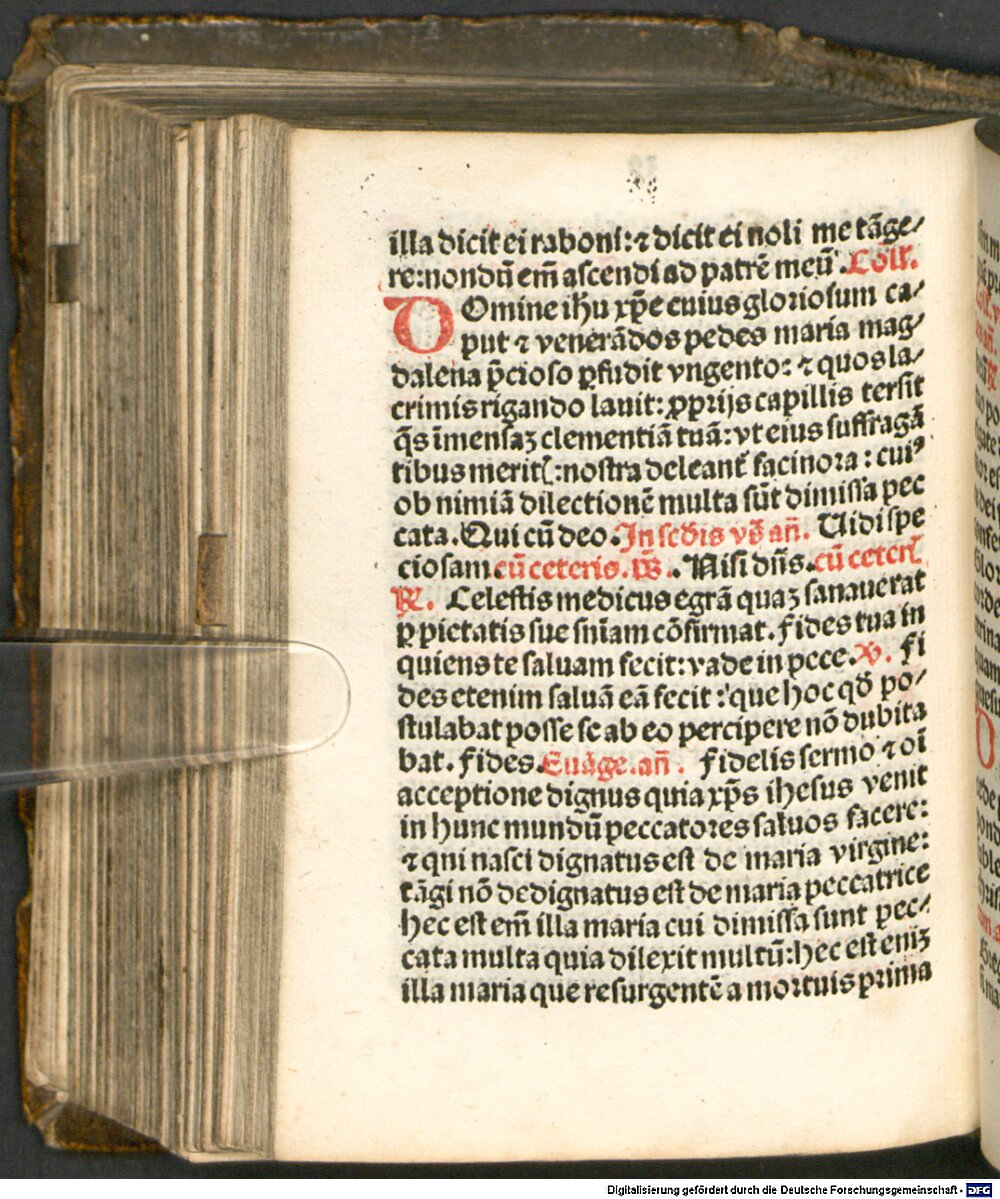 illa dicit ei raboni: ⁊ dicit ei noli me tãge⸗
re: nondũ em̃ ascendi ad patrẽ meũ. Coll'.
DOmine ihu xp̃e cuius gloriosum ca⸗
put ⁊ venerãdos pedes maria mag⸗
dalena p̃cioso ꝑfudit vngento: ⁊ quos la⸗
crimis rigando lauit: ꝓprijs capillis tersit
q̃s ĩmensaꝫ clementiã tuã: vt eius suffragã
tibus meritꝭ: nostra deleant̃ facinora: cuiꝰ
ob nimiã dilectionẽ multa sũt dimissa pec
cata. Qui cũ deo. In scďis vs̃ añ. Vidi spe
ciosam. cũ ceteris. ps̃. Nisi dñs. cũ ceterꝭ
℟. Celestis medicus egrã quaꝫ sanauerat
ꝑ pietatis sue sñiam cõfirmat. Fides tua in
quiens te saluam fecit: vade in pece. ℣. Fi
des etenim saluã eã fecit: que hoc qď po⸗
stulabat posse se ab eo percipere nõ dubita
bat. Fides. Euãge. añ. Fidelis sermo ⁊ oĩ
acceptione dignus quia xp̃s ihesus venit
in hunc mundũ peccatores saluos facere:
⁊ qni nasci dignatus est de maria virgine:
tãgi nõ dedignatus est de maria peccatrice
hec est em̃ illa maria cui dimissa sunt pec⸗
cata multa quia dilexit multũ: hec est eniꝫ
illa maria que resurgentẽ a mortuis prima
Digitalisierung gefördert durch die Deutsche Forschungsgemeinschaft - DFG